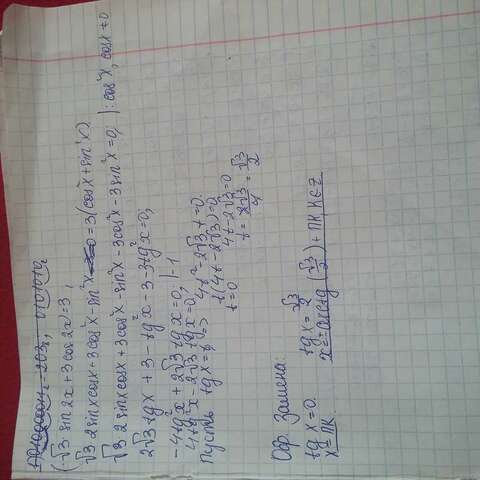 (√3 sin2x+3cos2x)=3,
√3 2sinxcosx+3cos²x-sin²x =0=3(cos²x+sin²x)
√3 2sinxcosx+3cos²x-sin²x-3cos²x-3sin²x=0; |:cos²x, cosx≠0
2√3tgx+3-tg²x-3-3tg²x=0;
-4tg²x+2√3tgx=0; |-1
4tg²x-2√3tgx=0
Пусть tgx=t => 4t²-2√3t=0
t(4t-2√3)=0
t=0 4t-2√3=0
t=2√3/4=√3/2
Обр. замена:
tgx=0 tgx=√3/2
x=πk x=arctg(√3/2)+πk, k∈Z